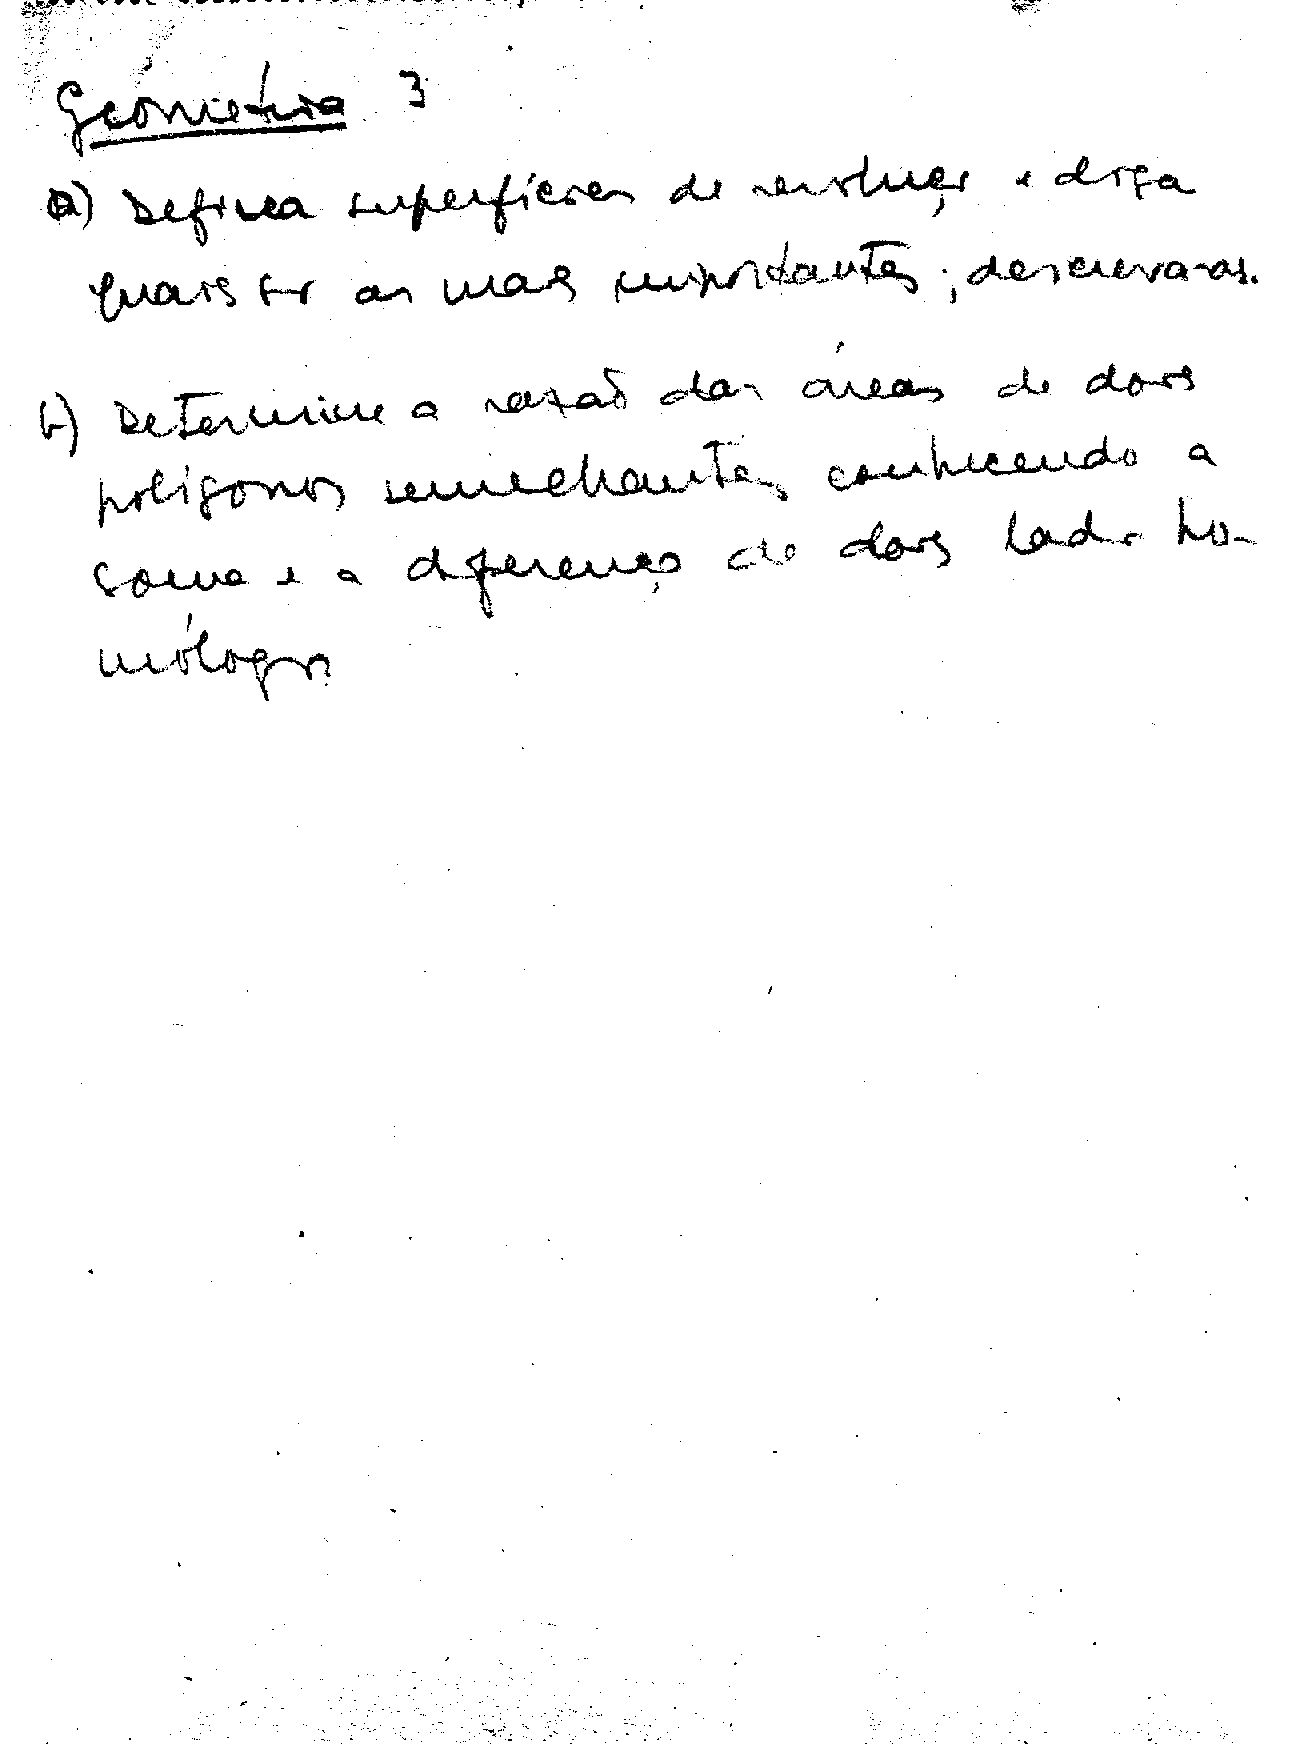 Geometria 3
a) Defina superfícies de revolução e diga
quais são as mais importantes; descreva-as.
b) Determine a razão das áreas de dois
polígonos semelhantes, conhecendo a
soma e a diferença de dois lados ho-
mólogos